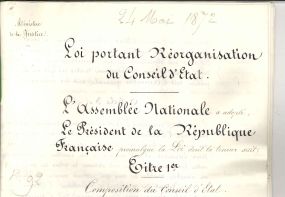 24 Mai 1872
Ministère
de la Justice.
Loi portant Réorganisation
du Conseil d'Etat.
L'Assemblée Nationale a adopté,
Le Président de la République
Française promulgue la Loi dont la teneur suit:
Titre 1er
Composition du Conseil d'Etat.